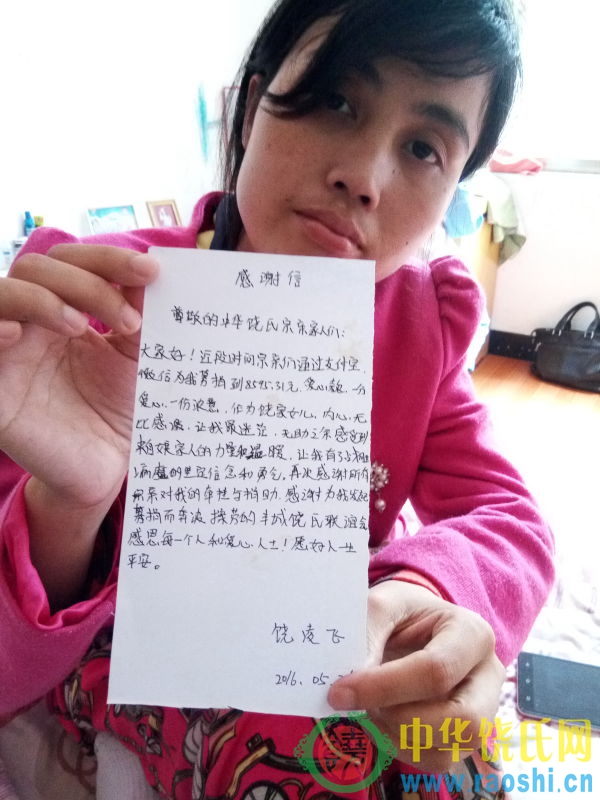 感谢信
尊敬的中华饶氏宗亲家人们:
大家好!近段时间宗亲们通过支付宝,
微信为我募捐到8595.31元,爱心款,一分
爱心,一份浓意,作为饶家女儿,内心无
比感激,让我很迷茫,无助之余感受到
来自娘家人的力量和温暖,让我有了战胜
病魔的坚定信念和勇气,再次感谢所有
宗亲对我的牵挂与捐助,感谢为我发起
募捐而奔波操劳的丰城饶氏联谊会
感恩每一个人和爱心人士!愿好人一生
平安。
饶凌飞
2016.05.
中华饶氏网
www.raoshi.cn